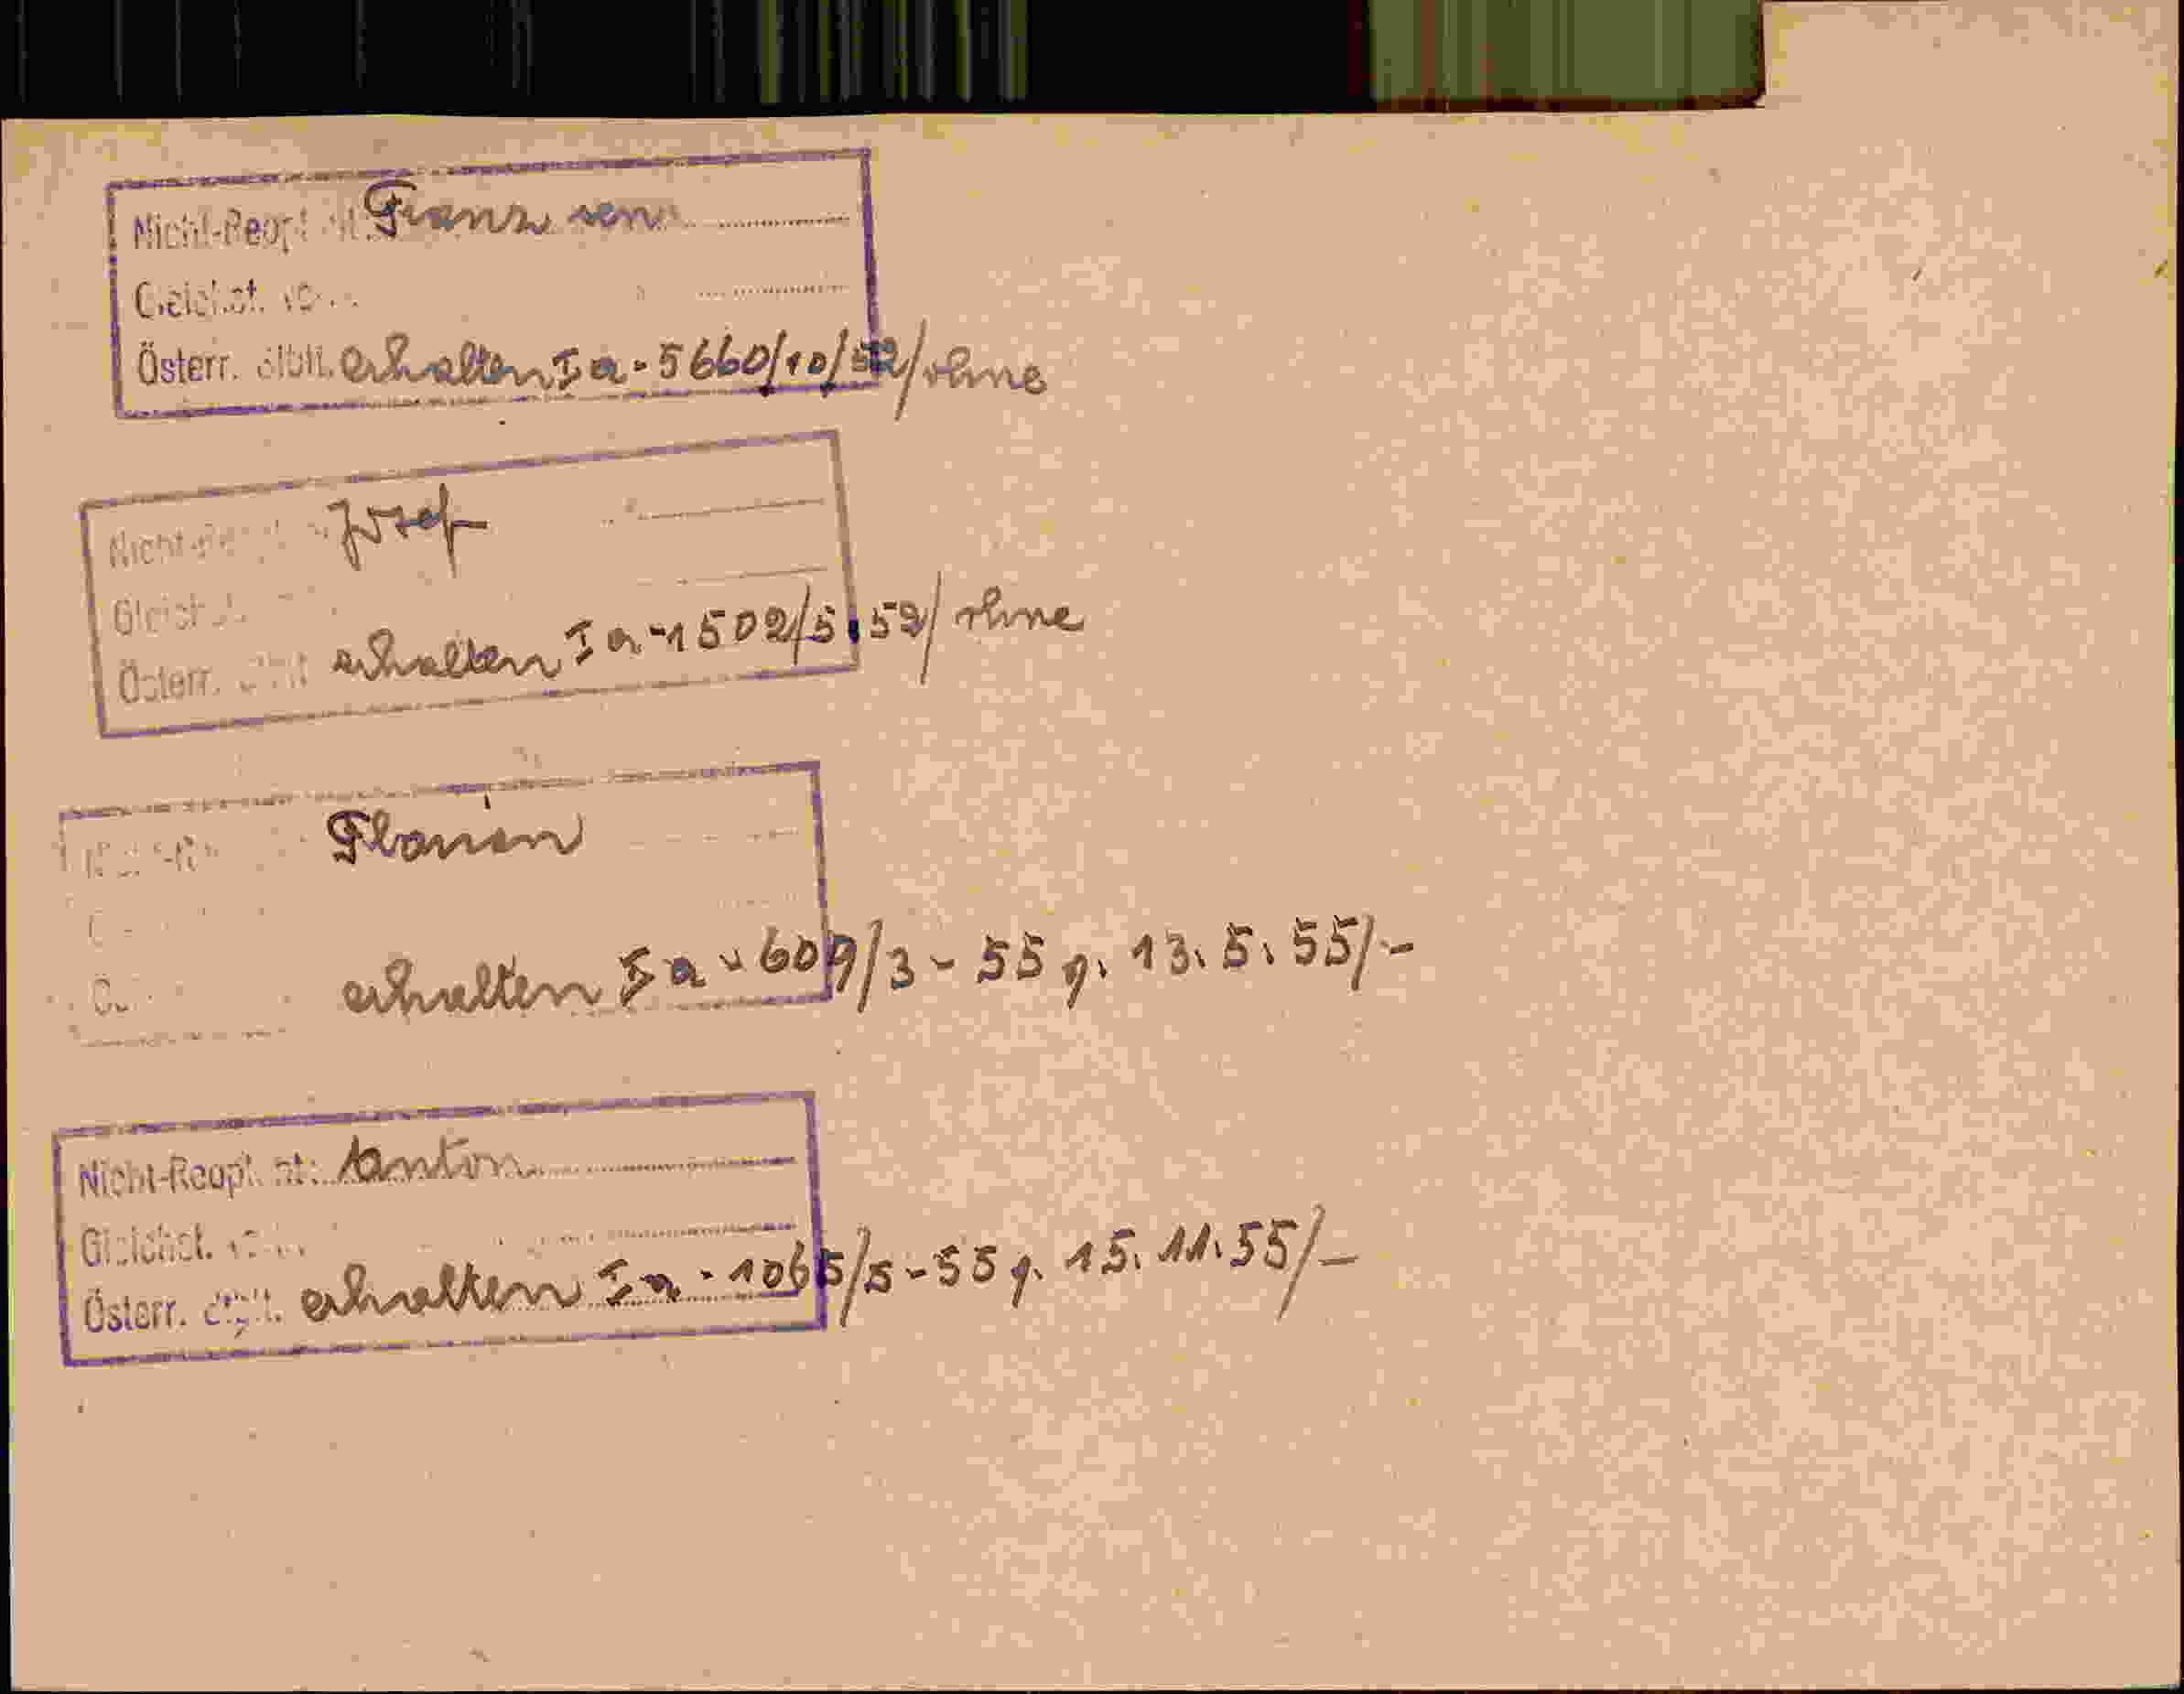 Nicht-Reopt. st. Franz sen.
Gleichst.
Österr. erhalten I a - 5660/10/52/ohne
Josef
Gleichst.
Österr. erhalten I a - 1502/5/52/ohne
Florian
erhalten I a - 609/3 - 55 g. 13. 5. 55/-
Nicht-Reopt. st.: Anton
Gleichst.
Österr. erhalten I a - 1065/5 - 55 g. 15. 11. 55/-